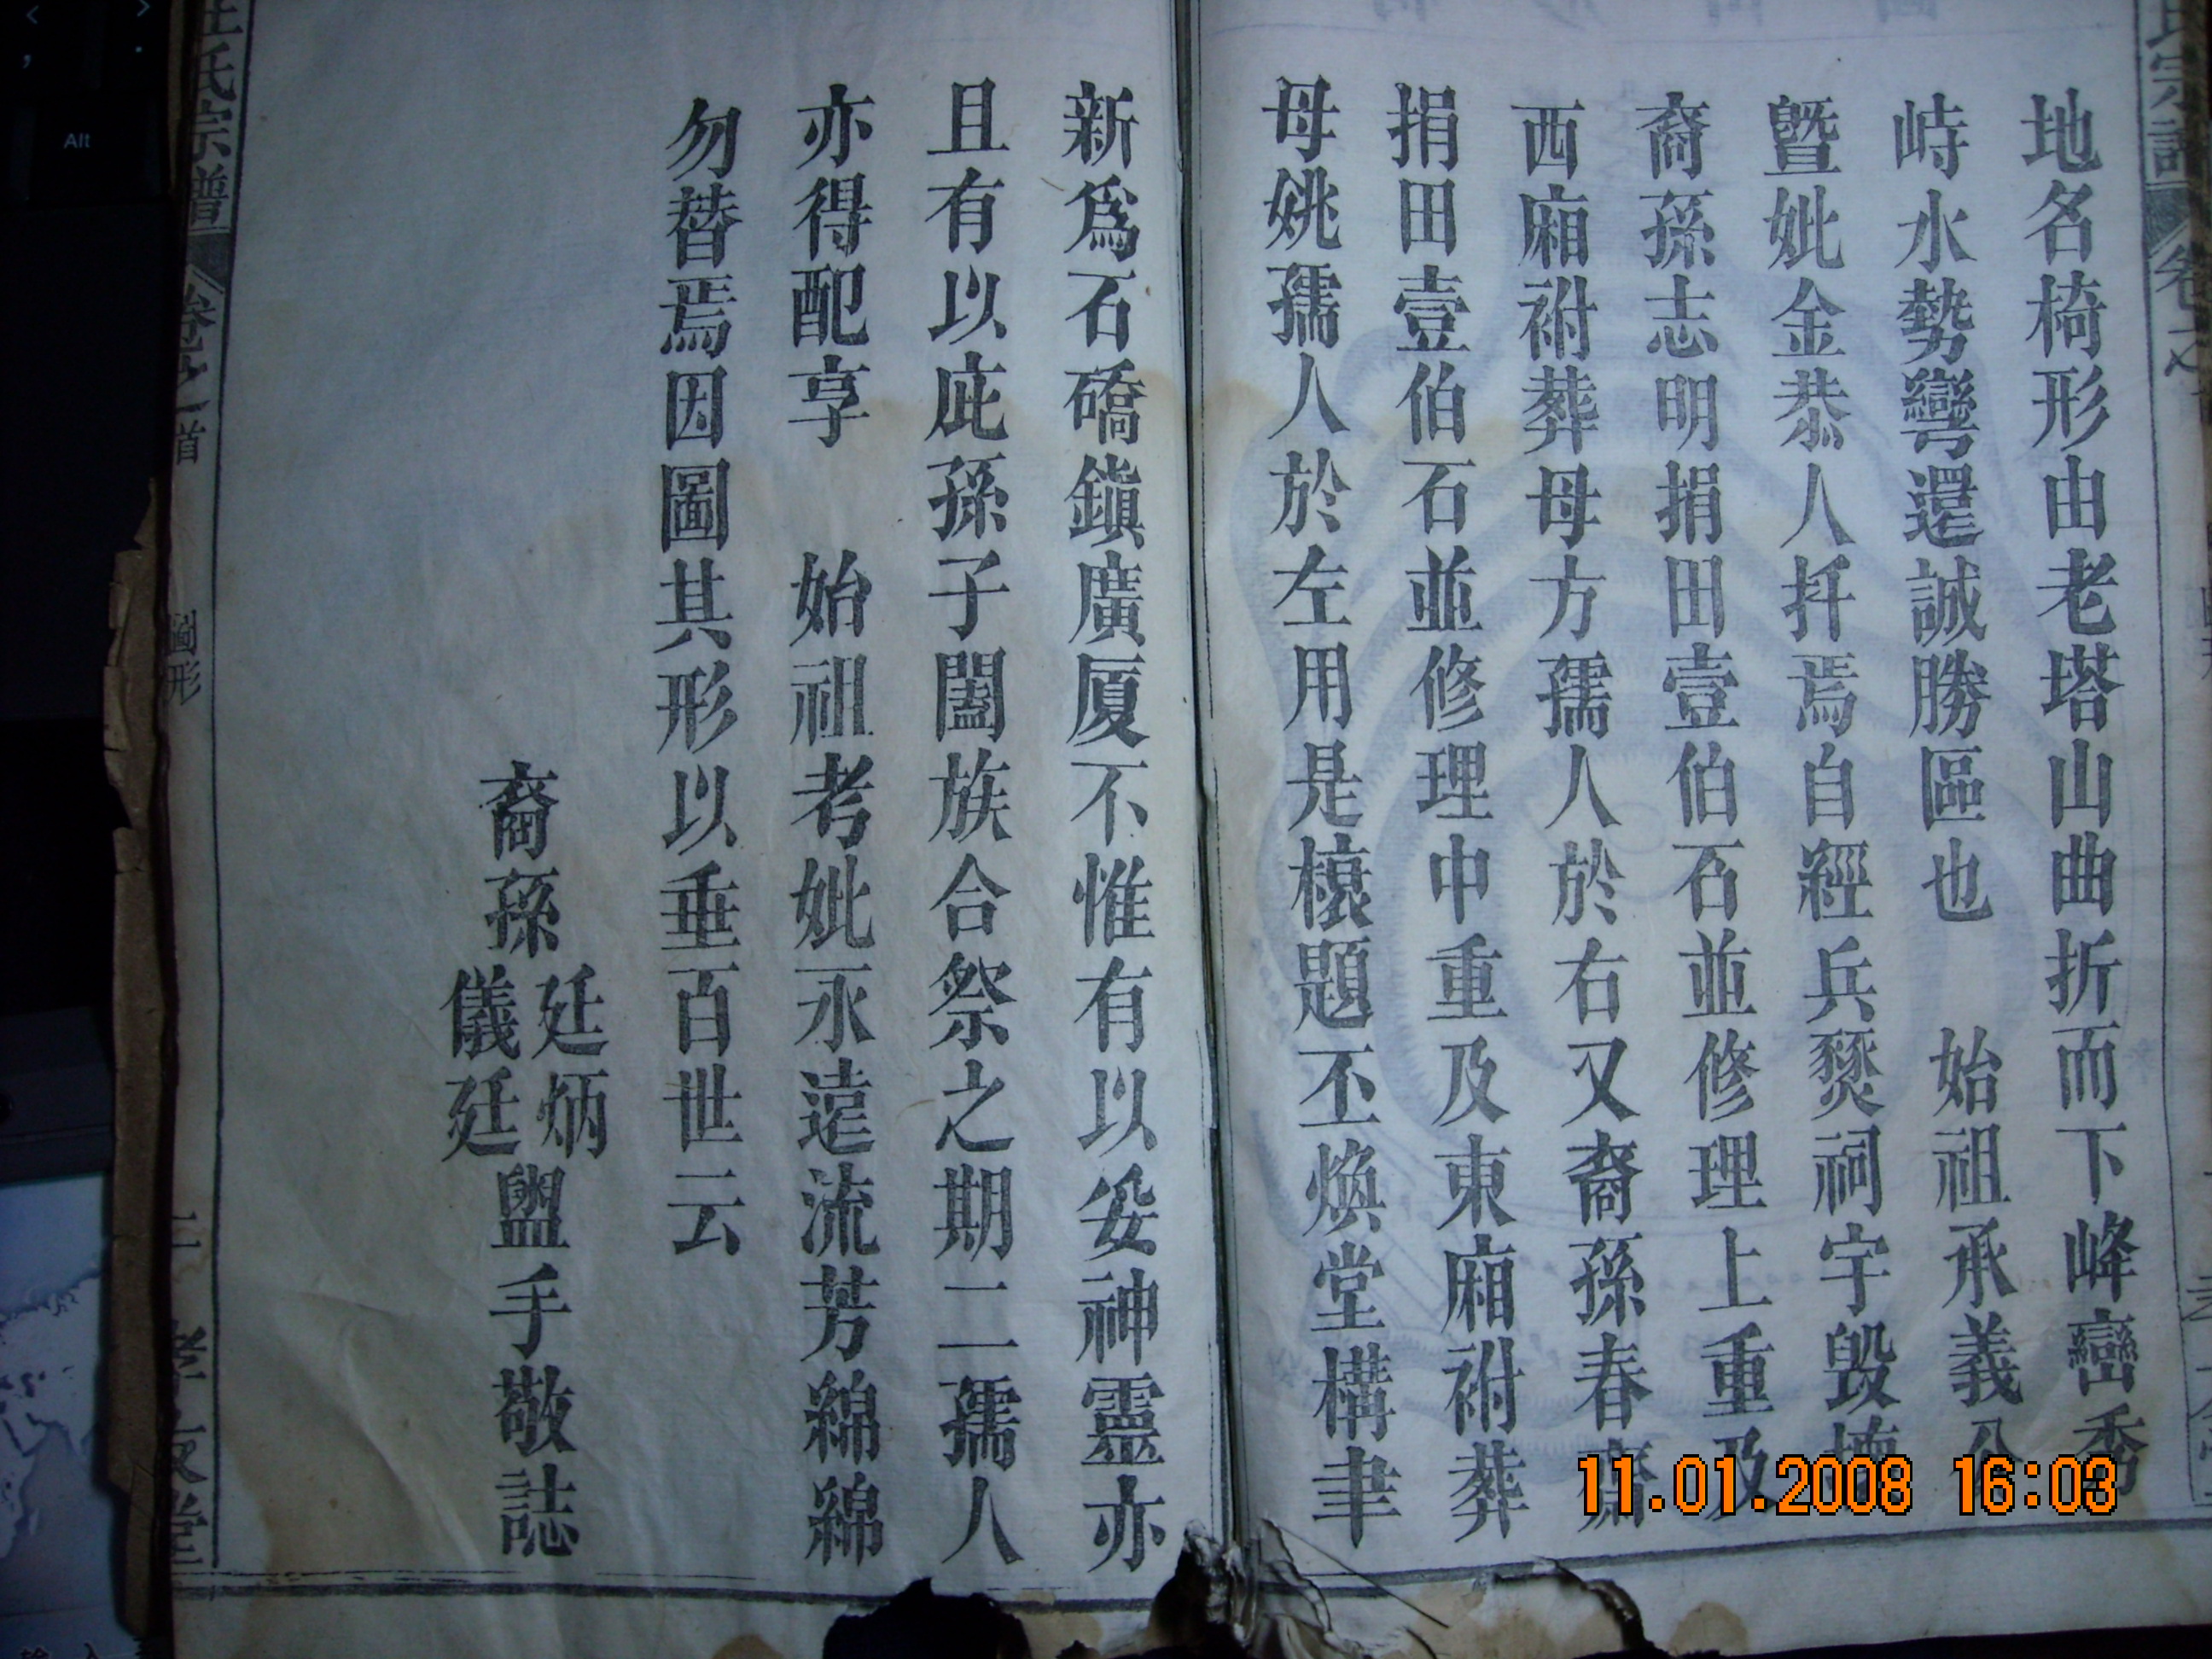 地名椅形由老塔山曲折而下峰巒秀
峙水勢彎還誠勝區也　始祖承義公
曁妣金恭人扦焉自經兵燹祠宇毀壞
裔孫志明捐田壹伯石並修理上重及
西廂祔葬母方孺人於右又裔孫春齋
捐田壹伯石並修理中重及東廂祔葬
母姚孺人於左用是榱題丕煥堂構聿
新爲石磽鎭廣厦不惟有以妥神靈亦
且有以庇孫子闔族合祭之期二孺人
亦得配享　始祖考妣永遠流芳綿綿
勿替焉因圖其形以垂百世云
裔孫
廷炳
儀廷
盥手敬誌
氏宗譜
卷之首
圖形
二
孝友堂
Alt
11.01.2008 16:03